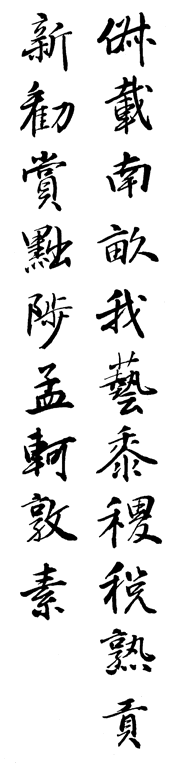 俶載南畝我藝黍稷稅熟貢
新勸賞黜陟孟軻敦素